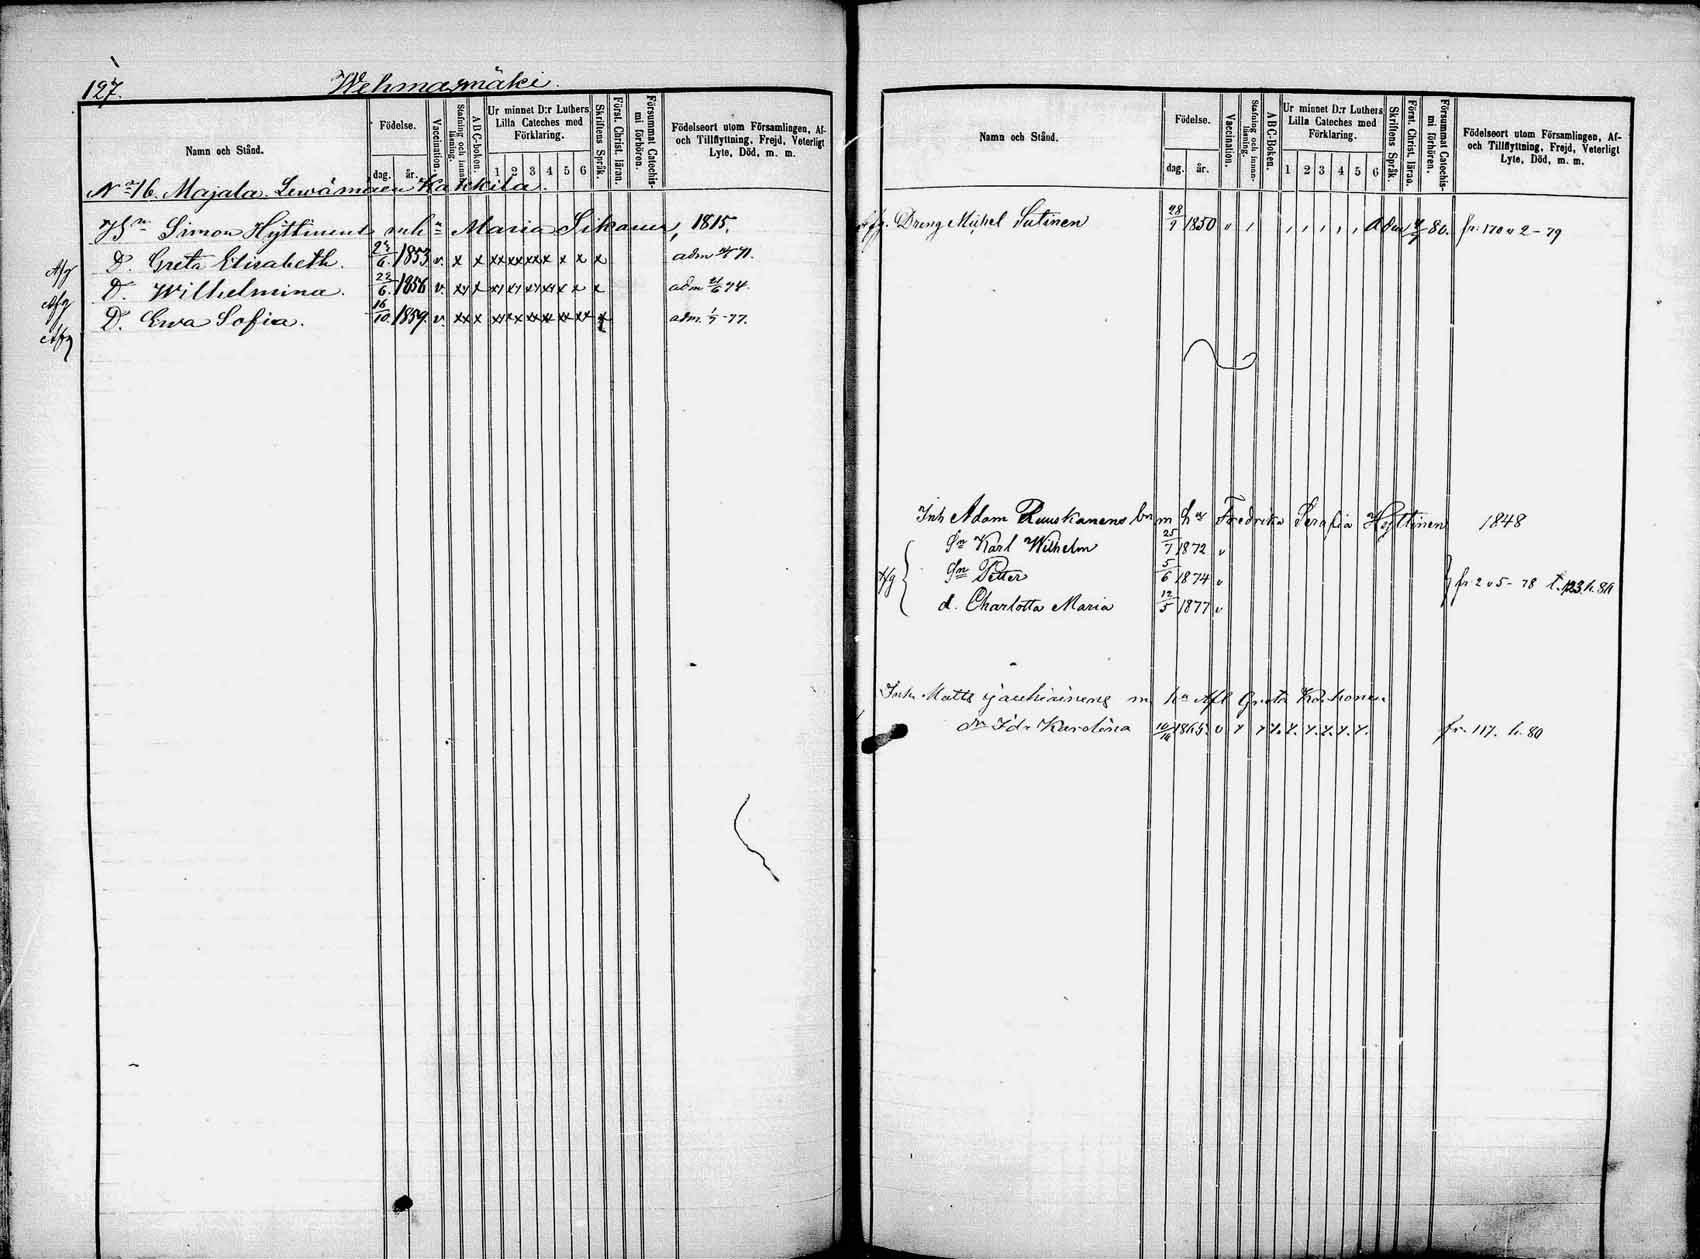 127.
Wehmasmäki.
Namn och Stånd.
Födelse.
dag. år.
Vaccination.
Stafning och innan-läsning.
ABC-Boken.
Ur minnet D:r Luthers Lilla Cateches med Förklaring.
1 2 3 4 5 6
Skriftens Språk.
Först. Christ. läran.
Försummat Catechismi förhören.
Födelseort utom Församlingen, Af- och Tillflyttning, Frejd, Veterligt Lyte, Död, m. m.
No 16. Majala Kakkila.
Simon Hyttinens Maria Sikanen, 1815.
Afg D. Greta Elisabeth. 1853 v. x x xx xx xx x x x x adm 71.
Afg D. Wilhelmina. 22/6. 1856 v. adm 21/6 74.
Afg D. Ewa Sofia. 16/10. 1859. v. xx x adm. 1/7 -77.
Namn och Stånd.
Födelse.
dag. år.
Vaccination.
Stafning och innan-läsning.
ABC-Boken.
Ur minnet D:r Luthers Lilla Cateches med Förklaring.
1 2 3 4 5 6
Skriftens Språk.
Först. Christ. läran.
Försummat Catechismi förhören.
Födelseort utom Församlingen, Af- och Tillflyttning, Frejd, Veterligt Lyte, Död, m. m.
Afg. Dreng Michel Sutinen 28/9 1850 v 80. fr. 170 v 2-79
Inh Adam Ruuskanens m hu Fredrika Serafia Hyttinen 1848
Sn Karl Wilhelm 25/7 1872 v
Afg Sn Petter 5/6 1874 v fr. 2 v 5-78
d. Charlotta Maria 12/5 1877 v
Inh. Matts m hu Greta
dr Ida Karolina 1865. v fr. 117. h. 80